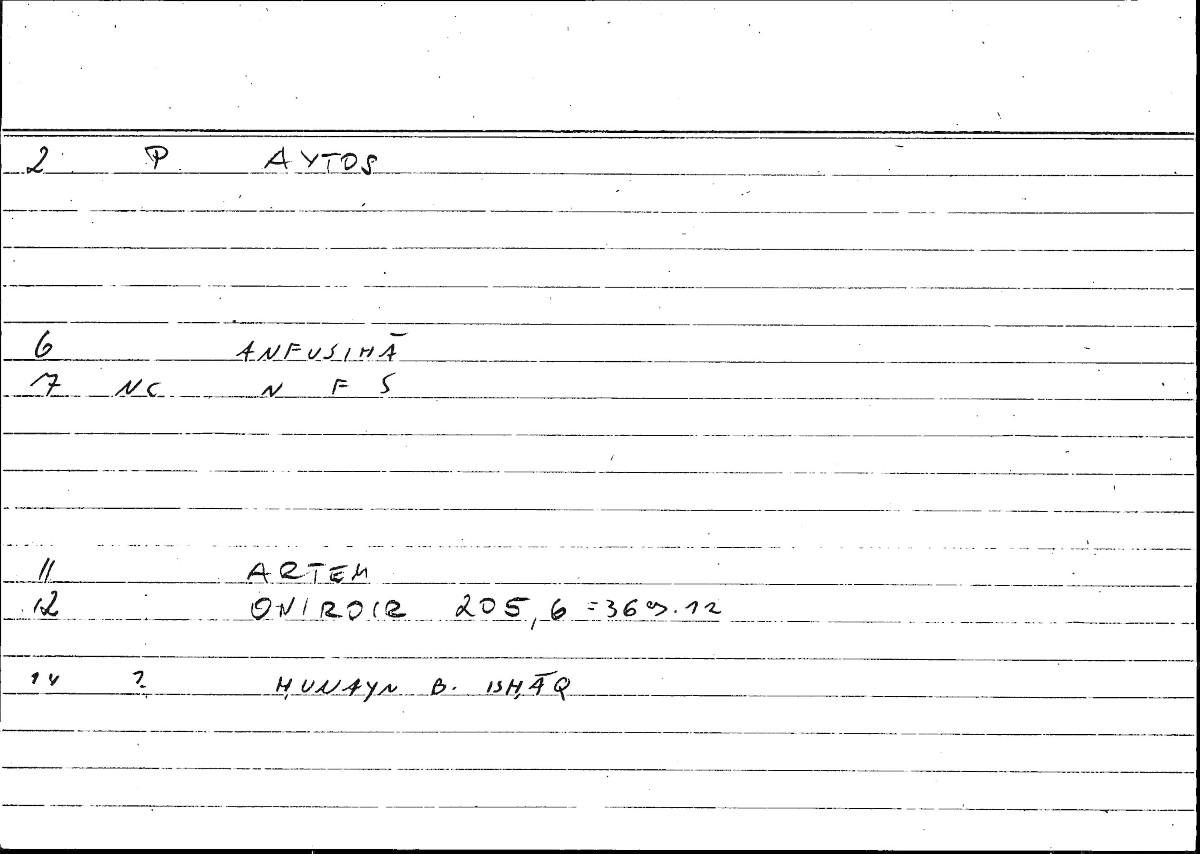 2 P AYTOS
6 ANFUSIHĀ
7 NC N F S
11 ARTEM
12 ONIROIR 205,6 =369.12
14 ? ḤUNAYN B. ISḤĀQ